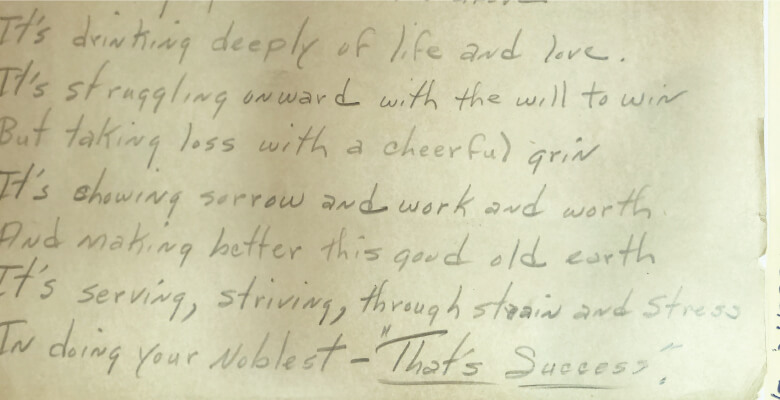 It's drinking deeply of life and love.
It's struggling onward with the will to win
But taking loss with a cheerful grin
It's showing sorrow and work and worth
And making better this good old earth
It's serving, striving, through strain and stress
In doing your Noblest - "That's Success".